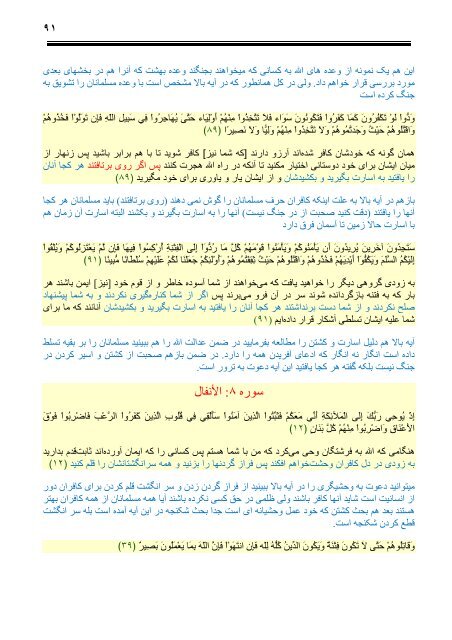 ٩١
این هم یک نمونه از وعده های الله به کسانی که میخواهند بجنگند وعده بهشت که آنرا هم در بخشهای بعدی
مورد بررسی قرار خواهم داد. ولی در کل همانطور که در آیه بالا مشخص است با وعده مسلمانان را تشویق به
جنگ کرده است
وَدُّوا لَوْ تَكْفُرُونَ كَمَا كَفَرُوا فَتَكُونُونَ سَوَاء فَلاَ تَتَّخِذُوا مِنْهُمْ أَوْلِيَاء حَتَّىَ يُهَاجِرُوا فِي سَبِيلِ اللّهِ فَإِن تَوَلَّوْا فَخُذُوهُمْ
وَاقْتُلُوهُمْ حَيْثُ وَجَدتَّمُوهُمْ وَلاَ تَتَّخِذُوا مِنْهُمْ وَلِيًّا وَلاَ نَصِيرًا ﴿٨٩﴾
همان گونه که خودشان کافر شده‌اند آرزو دارند [که شما نیز] کافر شوید تا با هم برابر باشید پس زنهار از
میان ایشان برای خود دوستانی اختیار مکنید تا آنکه در راه الله هجرت کنند پس اگر روی برتافتند هر کجا آنان
را یافتید به اسارت بگیرید و بکشیدشان و از ایشان یار و یاوری برای خود مگیرید (٨٩)
بازهم در آیه بالا به علت اینکه کافران حرف مسلمانان را گوش نمی دهند (روی برتافتند) باید مسلمانان هر کجا
آنها را یافتند (دقت کنید صحبت از در جنگ نیست) آنها را به اسارت بگیرند و بکشند البته اسارت آن زمان هم
با اسارت حالا زمین تا آسمان فرق دارد
سَتَجِدُونَ آخَرِينَ يُرِيدُونَ أَن يَأْمَنُوكُمْ وَيَأْمَنُوا قَوْمَهُمْ كُلَّ مَا رُدُّوَا إِلَى الْفِتْنِةِ أُرْكِسُوا فِيِهَا فَإِن لَّمْ يَعْتَزِلُوكُمْ وَيُلْقُوا
إِلَيْكُمُ السَّلَمَ وَيَكُفُّوَا أَيْدِيَهُمْ فَخُذُوهُمْ وَاقْتُلُوهُمْ حَيْثُ ثِقِفْتُمُوهُمْ وَأُوْلَئِكُمْ جَعَلْنَا لَكُمْ عَلَيْهِمْ سُلْطَانًا مُّبِينًا ﴿٩١﴾
به زودی گروهی دیگر را خواهید یافت که می‌خواهند از شما آسوده خاطر و از قوم خود [نیز] ایمن باشند هر
بار که به فتنه بازگردانده شوند سر در آن فرو می‌برند پس اگر از شما کناره‌گیری نکردند و به شما پیشنهاد
صلح نکردند و از شما دست برنداشتند هر کجا آنان را یافتید به اسارت بگیرید و بکشیدشان آنانند که ما برای
شما علیه ایشان تسلطی آشکار قرار داده‌ایم (٩١)
آیه بالا هم دلیل اسارت و کشتن را مطالعه بفرمایید در ضمن عدالت الله را هم ببینید مسلمانان را بر بقیه تسلط
داده است انگار نه انگار که ادعای آفریدن همه را دارد. در ضمن بازهم صحبت از کشتن و اسیر کردن در
جنگ نیست بلکه گفته هر کجا یافتید این آیه دعوت به ترور است.
سوره ٨: الأنفال
إِذْ يُوحِي رَبُّكَ إِلَى الْمَلآئِكَةِ أَنِّي مَعَكُمْ فَثَبِّتُوا الَّذِينَ آمَنُوا سَأُلْقِي فِي قُلُوبِ الَّذِينَ كَفَرُوا الرَّعْبَ فَاضْرِبُوا فَوْقَ
الأَعْنَاقِ وَاضْرِبُوا مِنْهُمْ كُلَّ بَنَانٍ ﴿١٢﴾
هنگامی که الله به فرشتگان وحی می‌کرد که من با شما هستم پس کسانی را که ایمان آورده‌اند ثابت‌قدم بدارید
به زودی در دل کافران وحشت‌خواهم افکند پس فراز گردنها را بزنید و همه سرانگشتانشان را قلم کنید (١٢)
میتوانید دعوت به وحشیگری را در آیه بالا ببینید از فراز گردن زدن و سر انگشت قلم کردن برای کافران دور
از انسانیت است شاید آنها کافر باشند ولی ظلمی در حق کسی نکرده باشند آیا همه مسلمانان از همه کافران بهتر
هستند بعد هم بحث کشتن که خود عمل وحشیانه ای است جدا بحث شکنجه در این آیه آمده است بله سر انگشت
قطع کردن شکنجه است.
وَقَاتِلُوهُمْ حَتَّى لاَ تَكُونَ فِتْنَةٌ وَيَكُونَ الدِّينُ كُلُّهُ لِلّه فَإِنِ انتَهَوْا فَإِنَّ اللّهَ بِمَا يَعْمَلُونَ بَصِيرٌ ﴿٣٩﴾